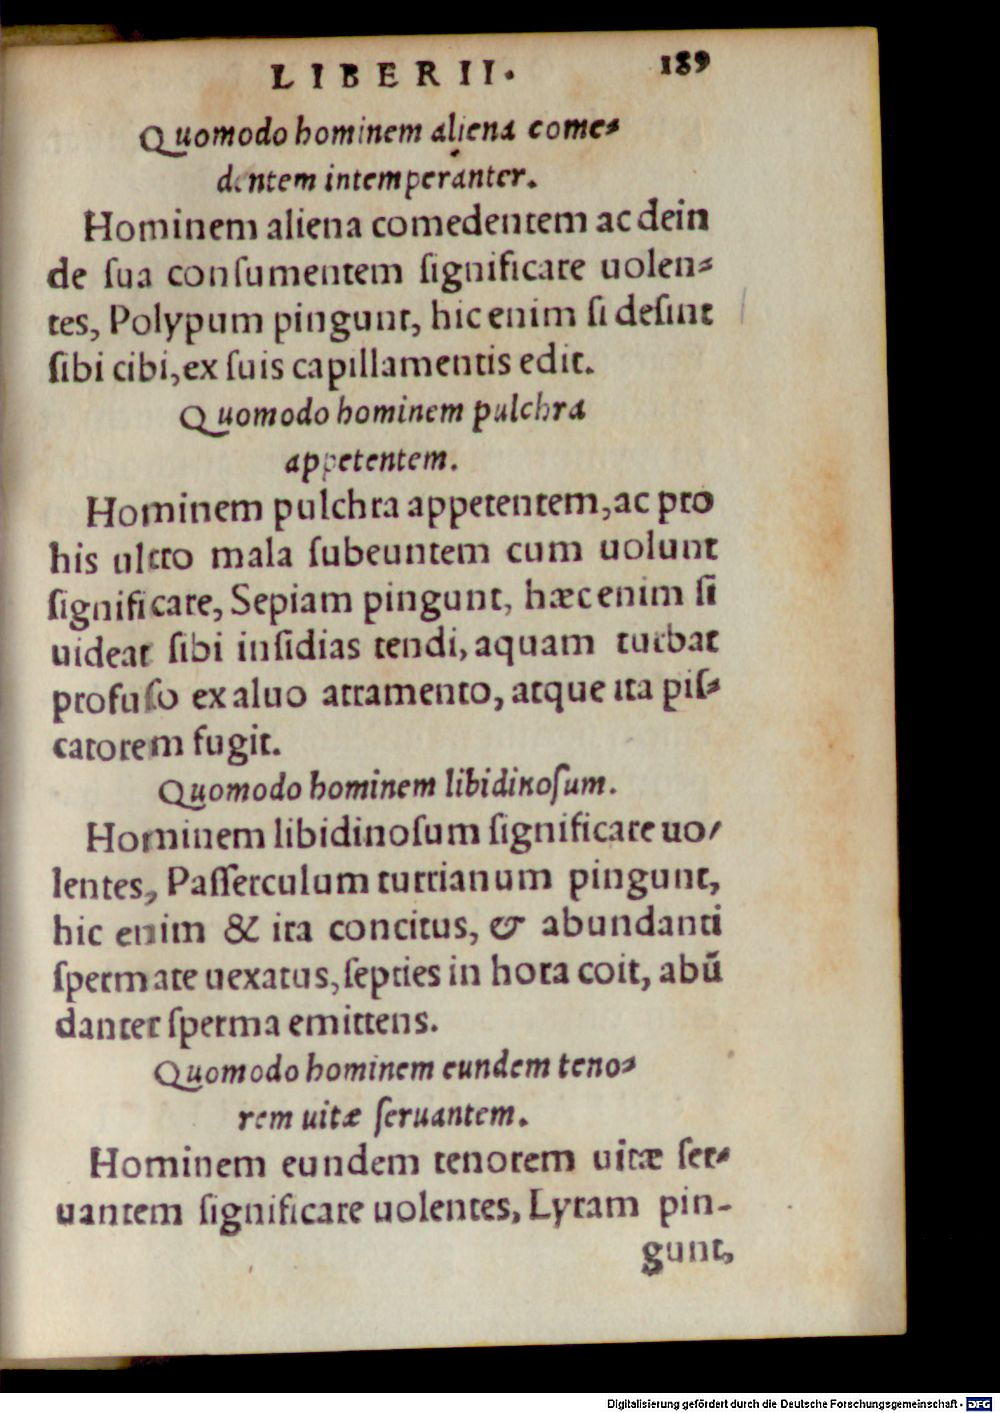 LIBER II. 189
Quomodo hominem aliena come-
dentem intemperanter.
Hominem aliena comedentem ac dein
de ſua conſumentem ſignificare uolen-
tes, Polypum pingunt, hic enim ſi deſint
ſibi cibi, ex ſuis capillamentis edit.
Quomodo hominem pulchra
appetentem.
Hominem pulchra appetentem, ac pro
his ultro mala ſubeuntem cum uolunt
ſignificare, Sepiam pingunt, hæc enim ſi
uideat ſibi inſidias tendi, aquam turbat
profuſo ex aluo atramento, atque ita piſ-
catorem fugit.
Quomodo hominem libidinoſum.
Hominem libidinoſum ſignificare uo/
lentes, Paſſerculum turrianum pingunt,
hic enim & ira concitus, & abundanti
ſpermate uexatus, ſepties in hora coit, abū
danter ſperma emittens.
Quomodo hominem eundem teno-
rem uitæ ſeruantem.
Hominem eundem tenorem uitæ ſer-
uantem ſignificare uolentes, Lyram pin-
gunt,
Digitalisierung gefördert durch die Deutsche Forschungsgemeinschaft - DFG